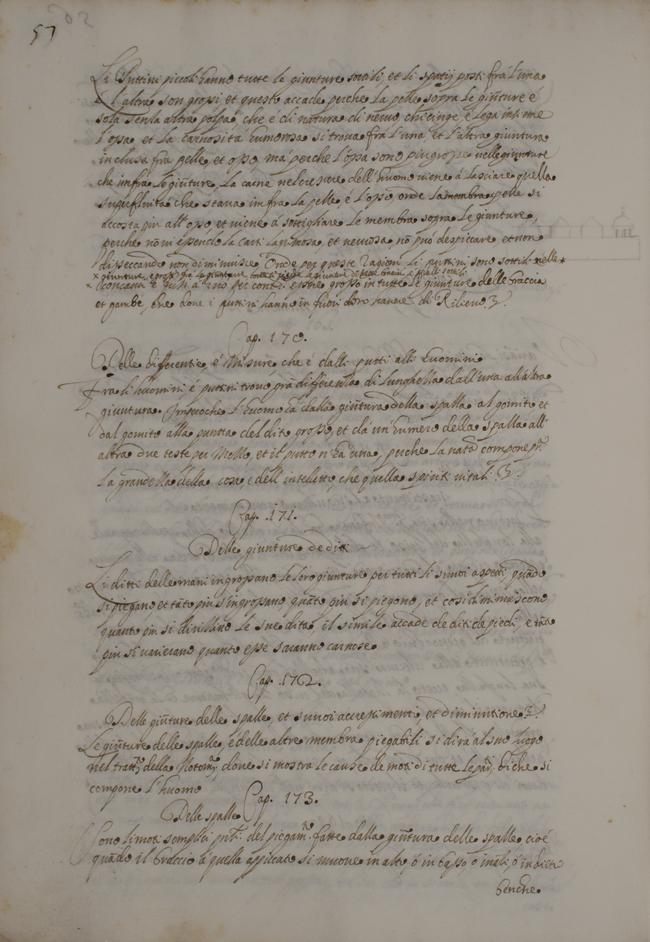 57
Li Puttini piccoli hanno tutte le giunture sottili, et li spatij posti frà l'una
et l'altra son grossi et questo accade perche la pelle sopra le giũture é
sola senza altra polpa che é di natura di nervo che cinge e lega insieme
l'ossa, et la carnosità humorosa si trova frà l'una et l'altra giuntura
inclusa frà pelle, et osso ma perche l'ossa sono più grosse nelle giunture
che infrà le giũture, la carne nel crescere dell'huomo viene à lasciare quella
superfluità che stava infra la pelle, é l'osso, onde la pelle si
accosta più all'osso, et viene à sottigliare le membra sopra le giunture,
perche non essendo la
disseccando non diminuisce Onde per queste ragioni li puttini sono sottili nelle
giunture e grossi frà le giunture
et gambe, che dove i puttini hanno in fuori loro hanno di Rilievo.
Cap. 170.
Delle differentie, é Misure, che é dalli putti alli huomini
Frà li huomini é puttini trovo grã differenza di lunghezza dall'una all'altra
giuntura. Impoche l'huomo ha dalla giũtura della spalla al gomito et
dal gomito alla punta del dito grosso, et da un humero della spalla all
altra due teste per Mezzo, et il putto n'ha una, perche la natã compone
la grandezza della casa dell'intelletto, che quella spiriti vitali.
Cap. 171.
Delle giunture de diti
Li diti delle mani ingrossano le loro giunture per tutti li suoi aspetti quãdo
si piegano et tãto più s'ingrossano quãto più si piegono, et così diminuiscono
quanto più si drizzano le sue dita, il simile accade de diti de piedi, é tãto
più si varierano quanto esse saranno carnose.
Cap. 172.
Delle giũture delle spalle, et suoi accrescimenti, et diminutione
Le giũture delle spalle, e delle altre membra piegabili si dirà al suo luogo
nel tratt. della Notomia, dove si mostra le cause de moti di tutte le parti di che si
compone l'huomo
Cap. 173.
Delle spalle
Sono li moti semplici del piegam. fatto dalla giũtura delle spalle cioè
quãdo il braccio à quella appiccato si muove in alto, ó in basso ó inãzi, ó indietro
benche